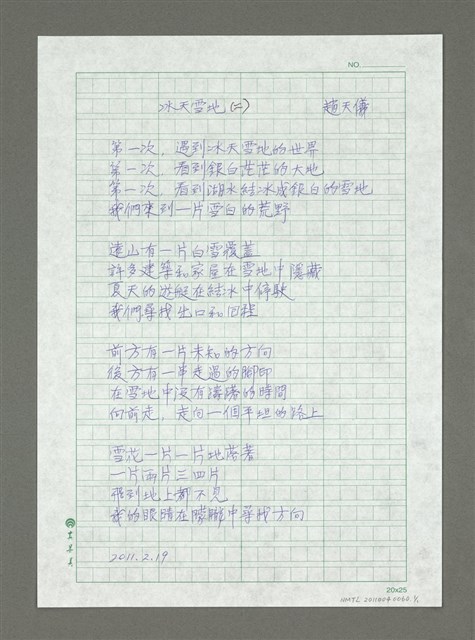 NO.
冰天雪地(二) 趙天儀
第一次，遇到冰天雪地的世界
第一次，看到銀白茫茫的大地
第一次，看到湖水結冰成銀白的雪地
我們來到一片雪白的荒野
遠山有一片白雪覆蓋
許多建築和家屋在雪地中隱藏
夏天的遊艇在結冰中停駛
我們尋找出口和回程
前方有一片未知的方向
後方有一串走過的腳印
在雪地中沒有躊躇的時間
向前走，走向一個平坦的路上
雪花一片一片地落著
一片兩片三四片
飛到地上都不見
我的眼睛在朦朧中尋找方向
2011.2.19
20x25
NMTL 20110040060